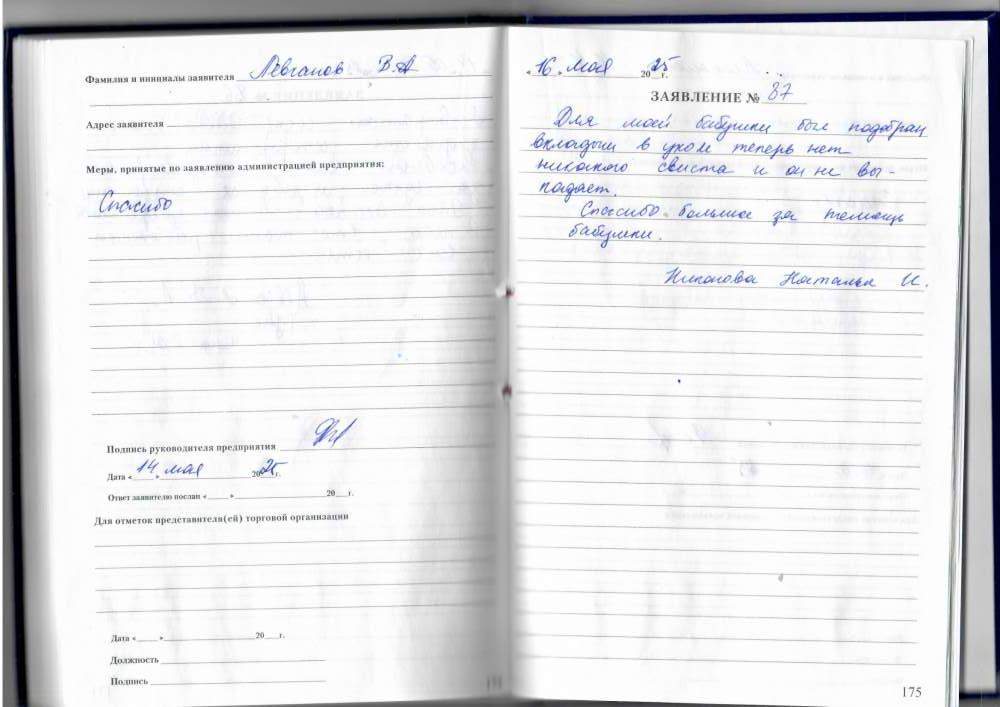 Фамилия и инициалы заявителя Левганов В.А
Адрес заявителя
Меры, принятые по заявлению администрацией предприятия:
Спасибо
Подпись руководителя предприятия
Дата «14 мая» 2025г.
Ответ заявителю послан «     » 20   г.
Для отметок представителя(ей) торговой организации
Дата «     » 20   г.
Должность
Подпись
«16» мая 2025г.
ЗАЯВЛЕНИЕ № 87
Для моей бабушки был подобран
вкладыш в ухом теперь нет
никакого свиста и он не вы-
падает.
Спасибо большое за помощь
бабушки.
Никонова Наталья И.
175